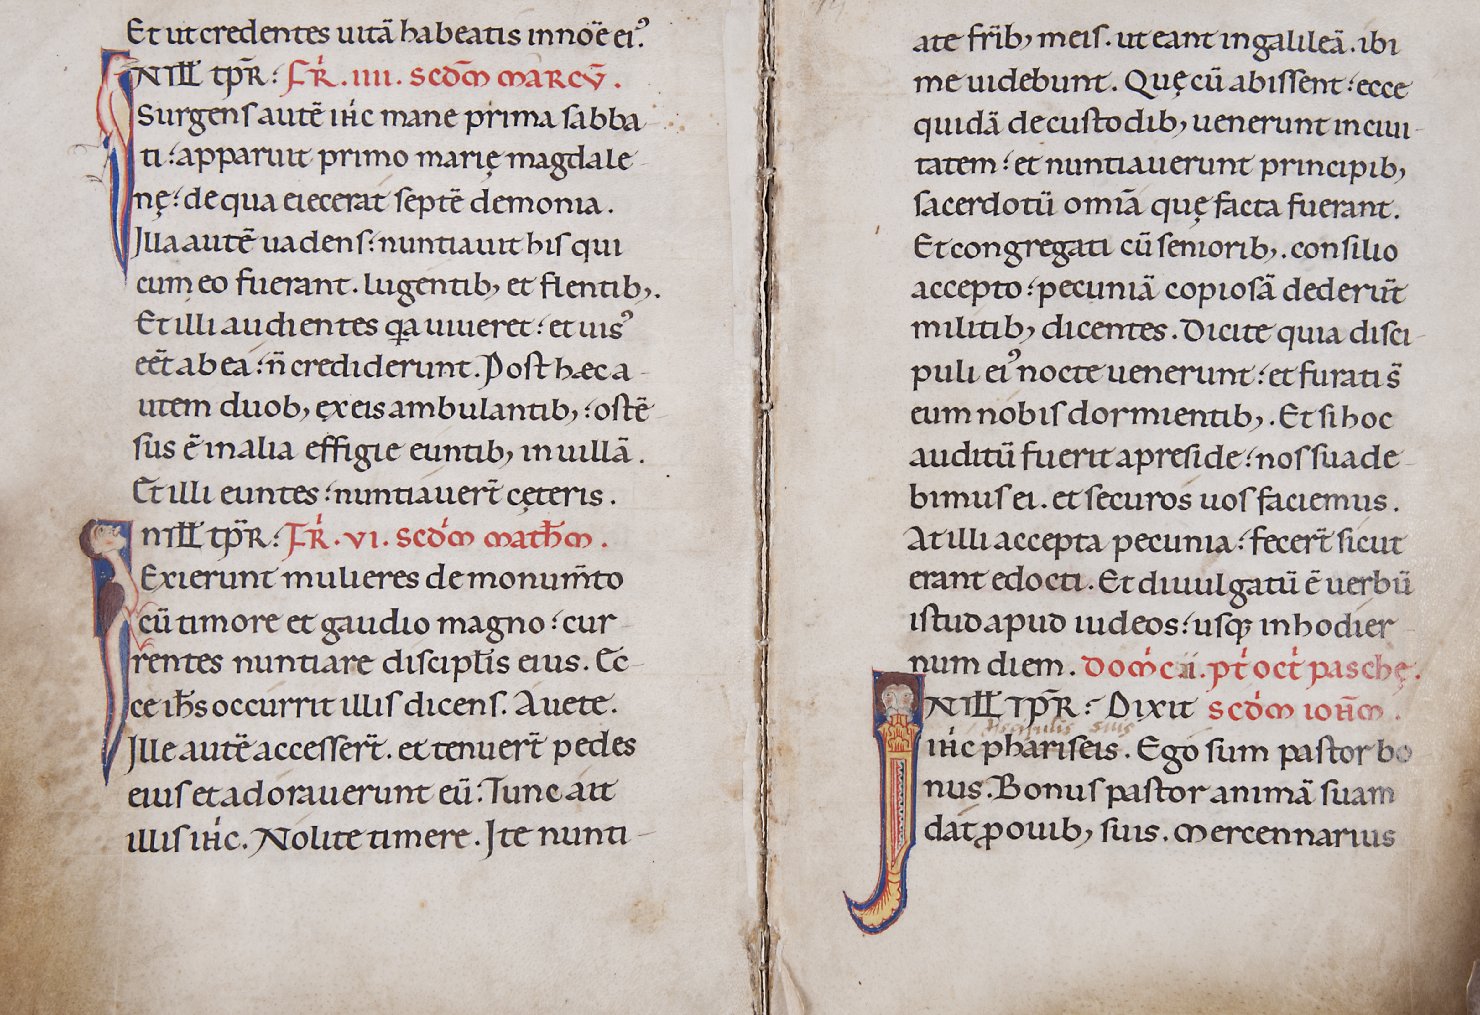 Et ut credentes uitā habeatis innoē ei᾽.
INILL̄ TP̄R: FR̄. IIII. SCDM̄ MARCV̄.
Surgens autē iħc mane prima sabba-
ti: apparuit primo marię magdale-
nę: de qua eiecerat septē demonia.
Illa autē uadens: nuntiauit his qui
cum eo fuerant. lugentib, et flentib,.
Et illi audientes qa uiueret: et uis᾽
eēt ab ea: n̄ crediderunt. Post hæc a-
utem duob, ex eis ambulantib,: ostē-
sus ē in alia effigie euntib, in uillā.
Et illi euntes: nuntiauer̄t cęteris.
INILL̄ TP̄R: FR̄. VI. SCDM̄ MATH̄M.
Exierunt mulieres de monum̄to
cū timore et gaudio magno: cur-
rentes nuntiare discipl̄is eius. Ec-
ce ih̄s occurrit illis dicens. Auete.
Ille autē accesser̄t. et tenuer̄t pedes
eius et adorauerunt eū: Tunc ait
illis iħc. Nolite timere. Ite nunti-
ate fr̄ib, meis. ut eant in galileā. ibi
me uidebunt. Quę cū abissent: ecce
quidā de custodib, uenerunt in ciui-
tatem: et nuntiauerunt principib,
sacerdotū omīā quę facta fuerant.
Et congregati cū seniorib,. consilio
accepto: pecuniā copiosā dederūt
militib, dicentes. Dicite quia disci-
puli ei᾽ nocte uenerunt: et furati s̄
eum nobis dormientib,. Et si hoc
auditū fuerit apreside: nos suade-
bimus ei. et securos uos faciemus.
At illi accepta pecunia: fecer̄t sicut
erant edocti. Et diuulgatū ē uerbū
istud apud iudeos: usqꝫ in hodier-
num diem. DOM̄C II. PT̄ OCT̄ PASCHĘ.
INILL̄ TP̄R: Dixit SCDM̄ IOH̄M.
discipulis suis
iħc phariseis. Ego sum pastor bo
nus. Bonus pastor animā suam
dat ꝓ ouib, suis. Mercennarius